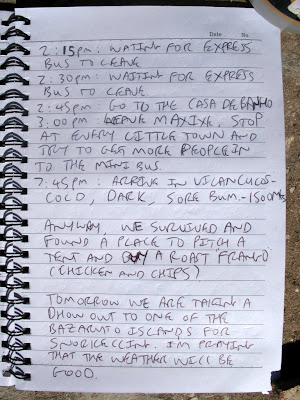 Date No.
2:15pm: WATING FOR EXPRESS
BUS TO LEAVE
2:30pm: WAITING FOR EXPRESS
BUS TO LEAVE
2:45pm: GO TO THE CASA DE BANHO
3:00pm LEAVE MAXIXE, STOP
AT EVERY LITTLE TOWN AND
TRY TO GET MORE PEOPLE IN
TO THE MINI BUS.
7:45pm: ARRIVE IN VILANCULOS-
COLD, DARK, SORE BUM.-
ANYWAY, WE SURVIVED AND
FOUND A PLACE TO PITCH A
TENT AND BUY A ROAST FRANGO
(CHICKEN AND CHIPS)
TOMORROW WE ARE TAKING A
DHOW OUT TO ONE OF THE
BAZARUTO ISLANDS FOR
SNORKELLING. I'M PRAYING
THAT THE WEATHER WILL BE
GOOD.